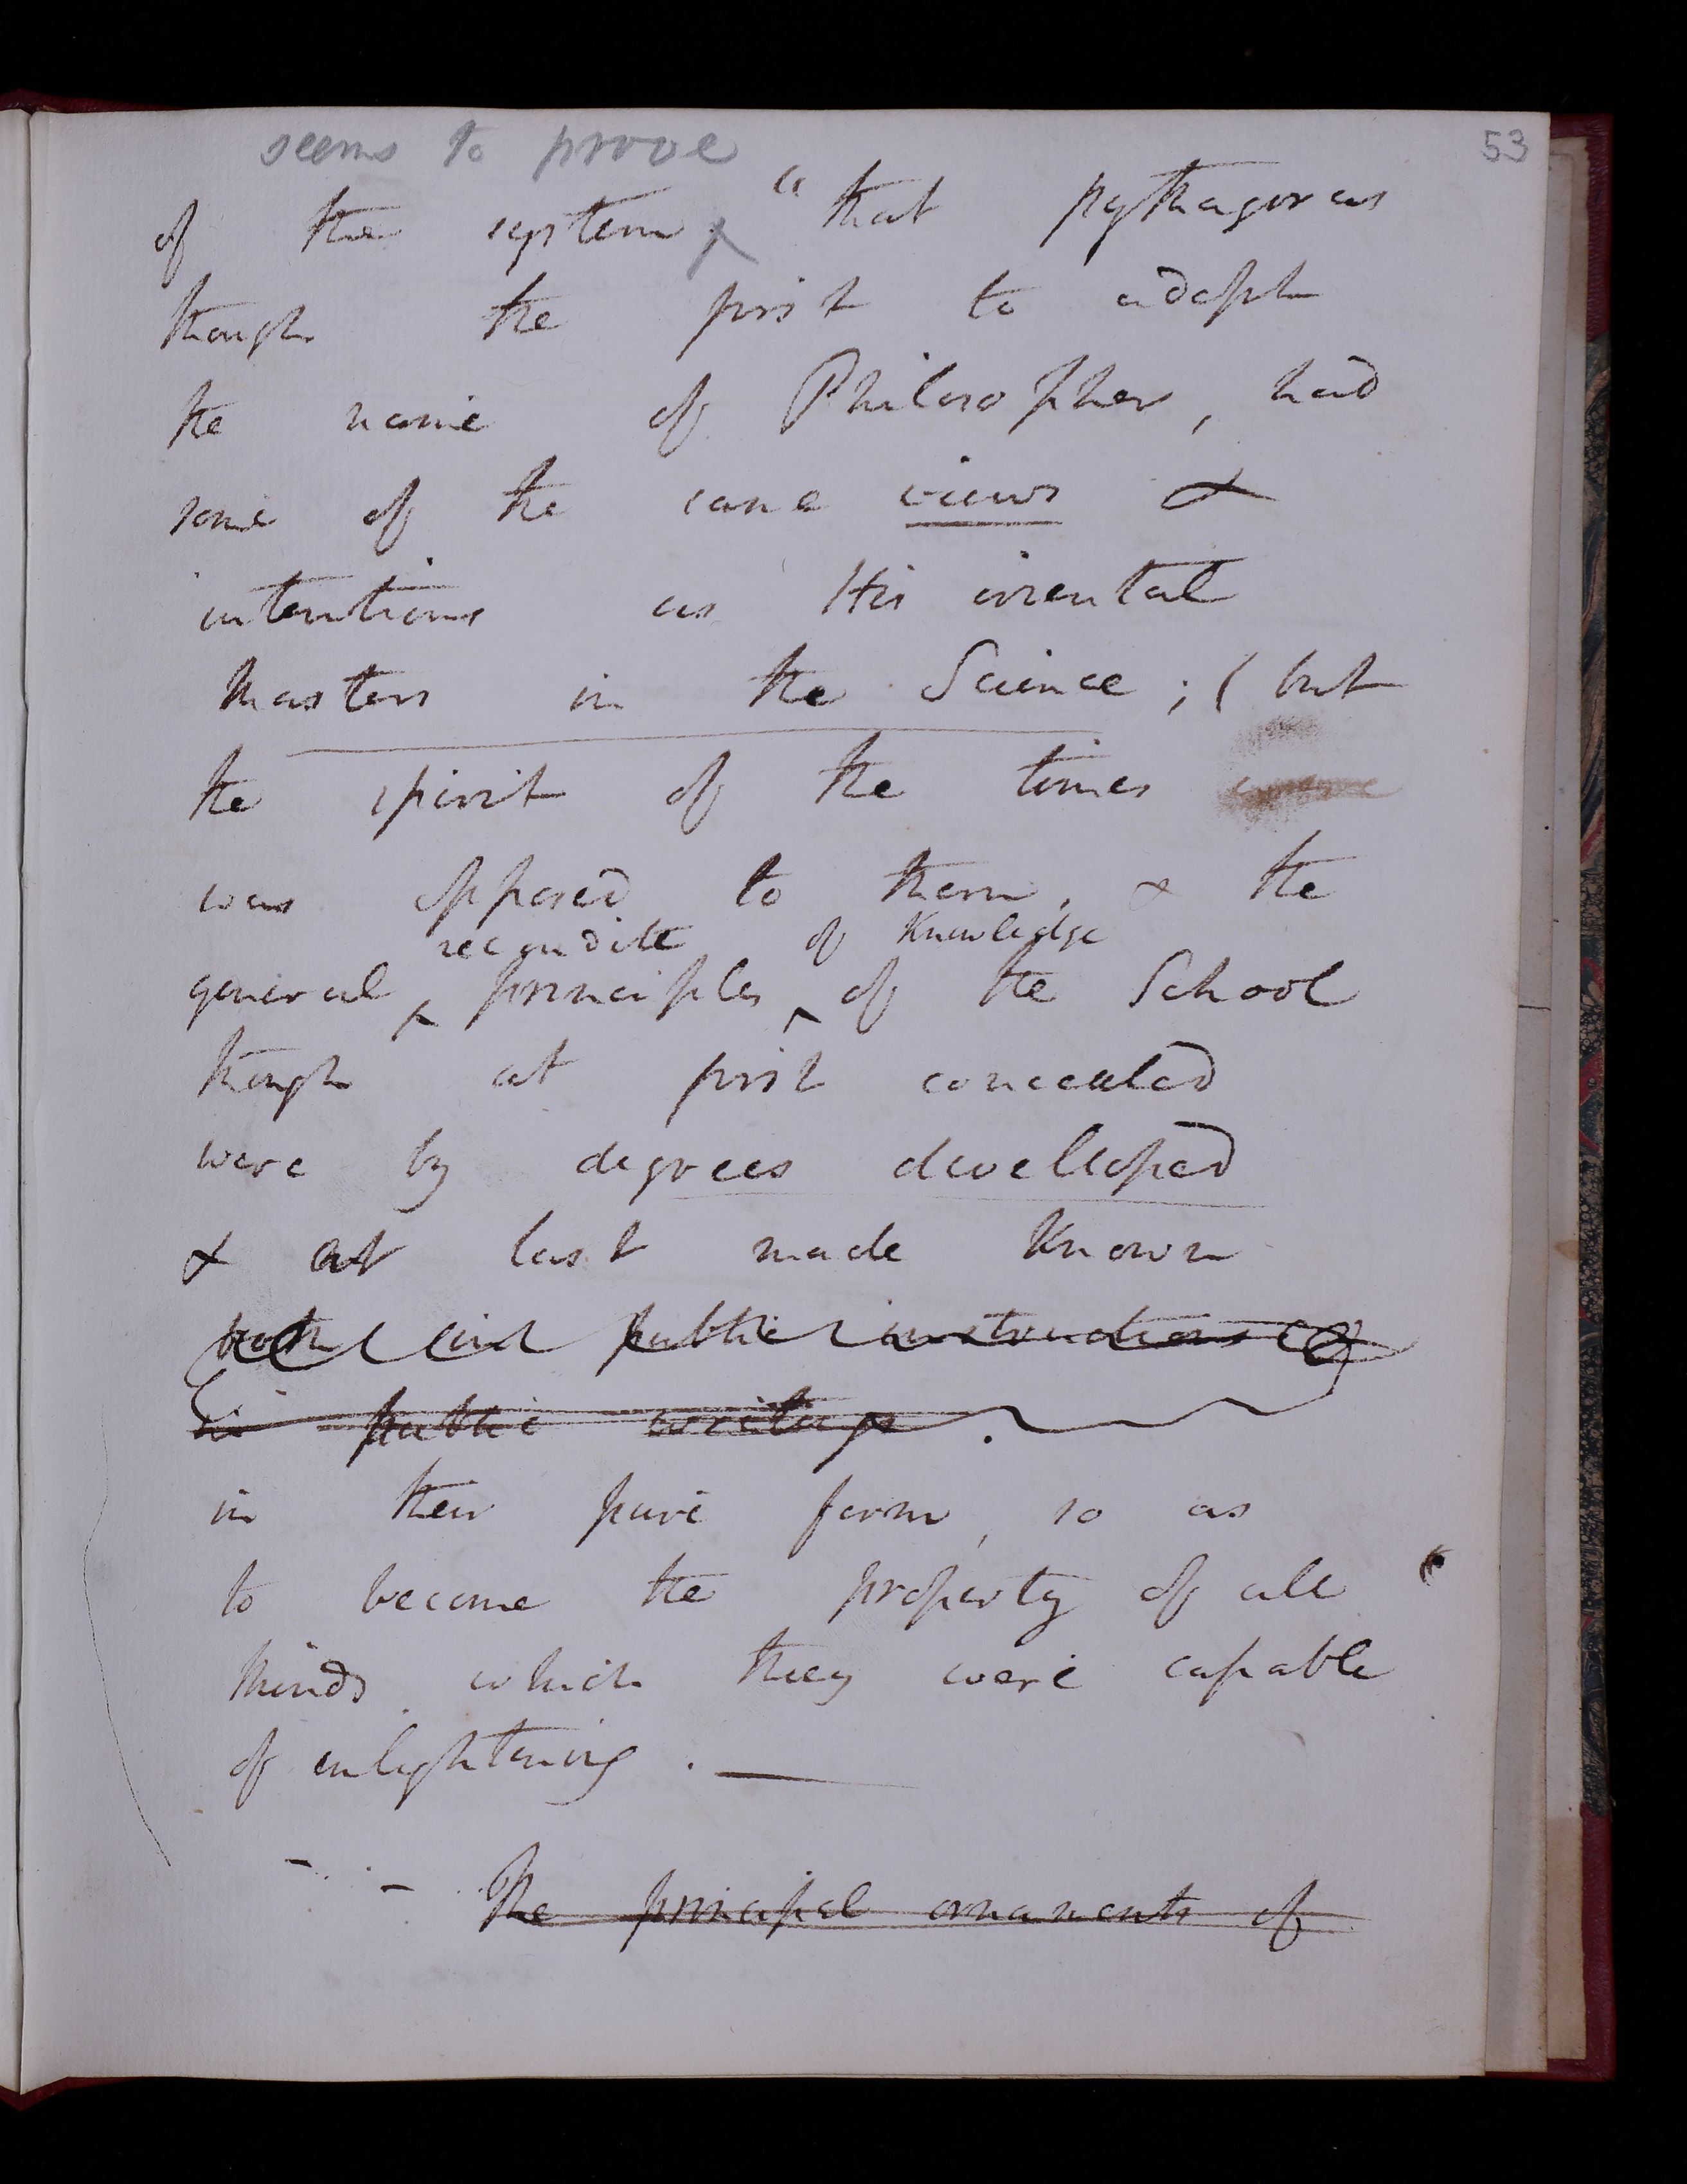 53
seems to prove
of the system "that pythagoras
though the first to adopt
the name of Philosopher, had
some of the same views &
intentions as His oriental
Masters in the Science; (but
the spirit of the times
was opposed to them, & the
recondite of Knowledge
general principles of the School
though at first concealed
were by degrees developed
& at last made Known
both in public instructions of
his public writings.
in their pure form, so as
to become the property of all
Minds which they were capable
of enlightening. —
The principal ornaments of